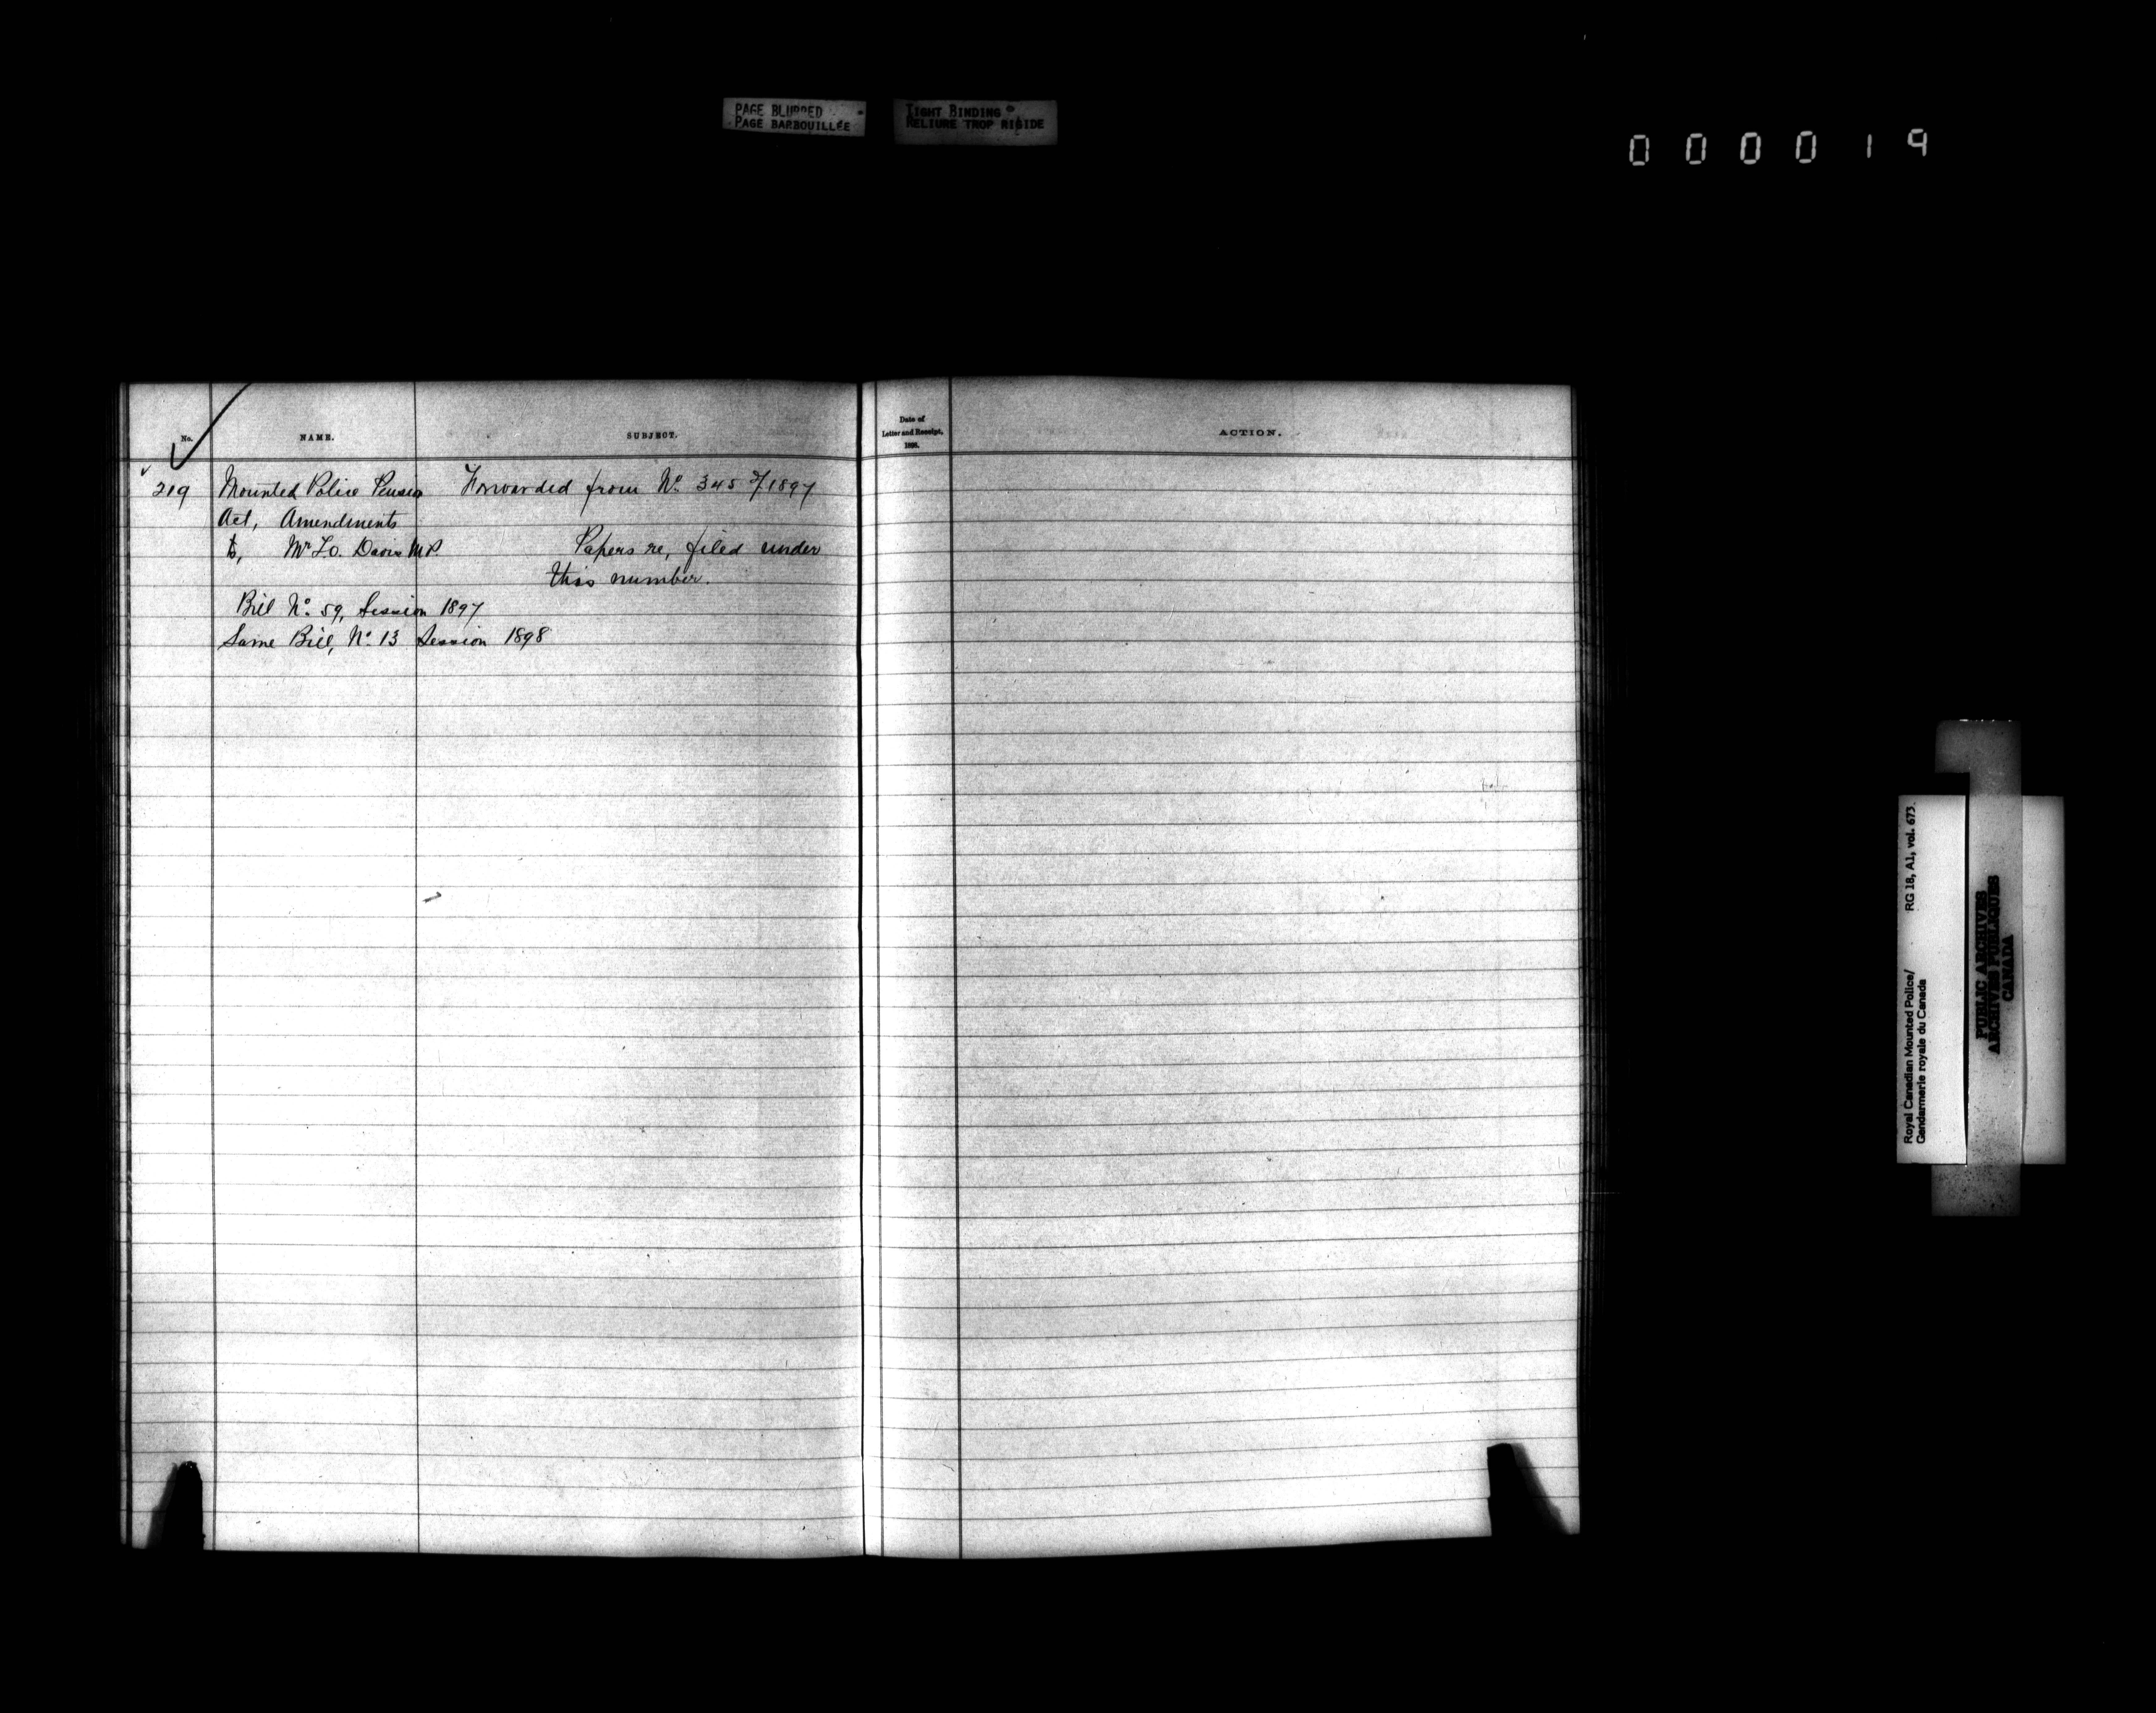 PAGE BLURRED
PAGE BARBOUILLÉE
TIGHT BINDING
RELIURE TROP RIGIDE
000019
No.
NAME.
SUBJECT.
Date of
Letter and Receipt,
1898.
ACTION.
219 Mounted Police Pension Forwarded from No. 345 of/1897
Act, Amendments
to, Mr Davis M.P. Papers re, filed under
this number.
Bill No. 59, Session 1897
Same Bill, No. 13 Session 1898
Royal Canadian Mounted Police/
Gendarmerie royale du Canada
RG 18, A1, vol. 673.
PUBLIC ARCHIVES
ARCHIVES PUBLIQUES
CANADA